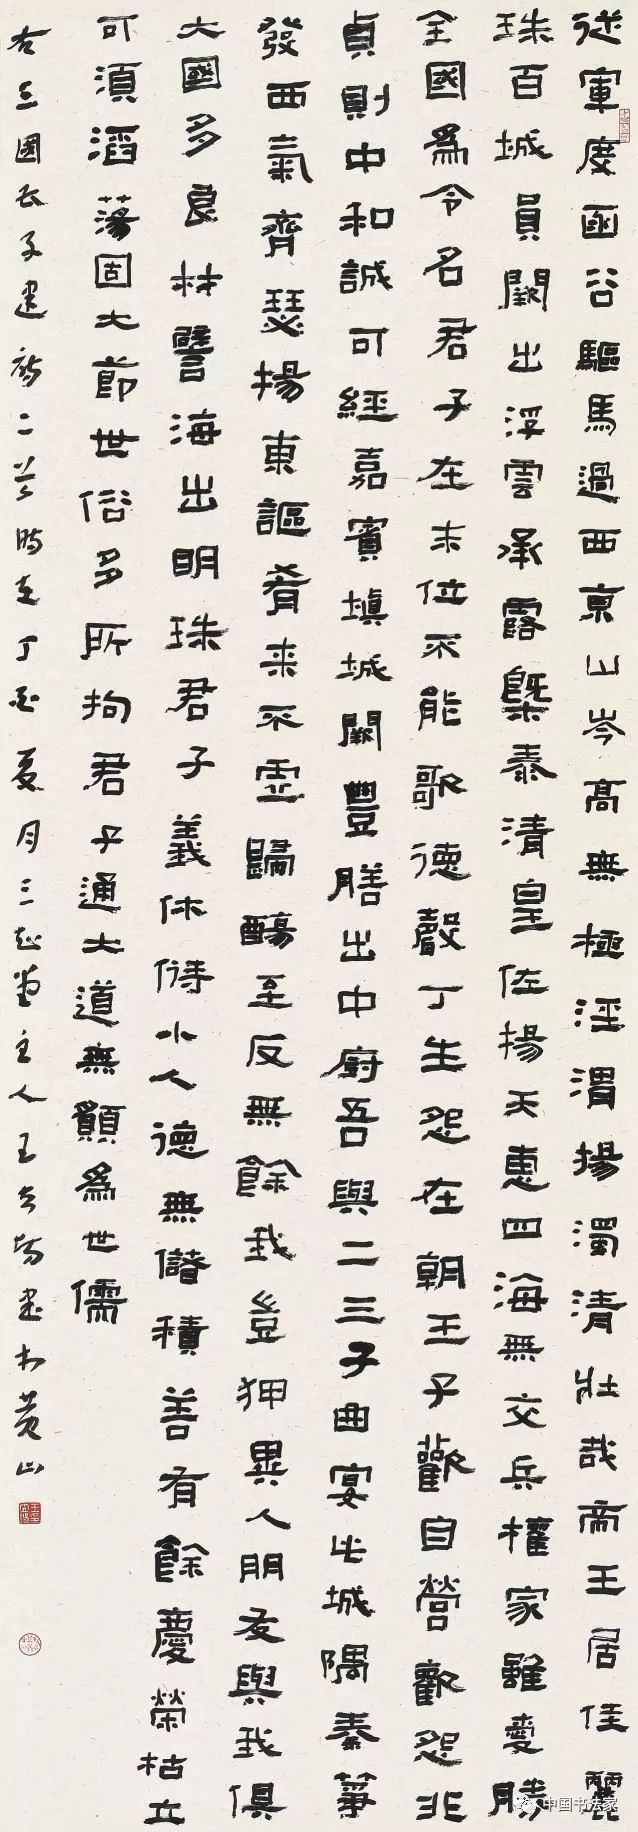 從軍度函谷驅馬過西京山岑高無極涇渭揚濁清壯哉帝王居佳麗
珠百城員闕出浮雲承露槩泰清皇佐揚天惠四海無交兵權家雖愛勝
全國爲令名君子在末位不能歌德聲丁生怨在朝王子歡自營歡怨非
貞則中和誠可經嘉賓填城闕豐膳出中廚吾與二三子曲宴此城隅秦箏
發西氣齊瑟揚東謳肴來不虛歸觴至反無餘我豈狎異人朋友與我俱
大國多良材譬海出明珠君子義休偫小人德無儲積善有餘慶榮枯立
可須滔蕩固大節世俗多所拘君子通大道無願爲世儒
右三國曹子建詩二首時在丁酉夏月三堂主人王書於黃山
中国书法家